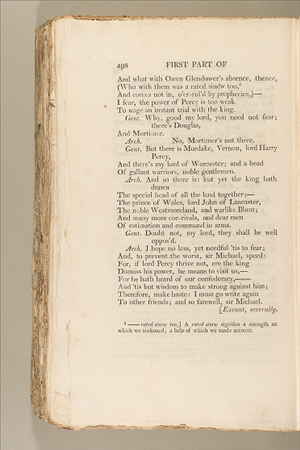 498 FIRST PART OF
And what with Owen Glendower's absence, thence,
(Who with them was a rated sinew too,⁹
And comes not in, o'er-rul'd by prophecies,)—
I fear, the power of Percy is too weak
To wage an instant trial with the king.
Gent. Why, good my lord, you need not fear;
there's Douglas,
And Mortimer.
Arch. No, Mortimer's not there.
Gent. But there is Mordake, Vernon, lord Harry
Percy,
And there's my lord of Worcester; and a head
Of gallant warriors, noble gentlemen.
Arch. And so there is: but yet the king hath
drawn
The special head of all the land together;—
The prince of Wales, lord John of Lancaster,
The noble Westmoreland, and warlike Blunt;
And many more cor-rivals, and dear men
Of estimation and command in arms.
Gent. Doubt not, my lord, they shall be well
oppos'd.
Arch. I hope no less, yet needful 'tis to fear;
And, to prevent the worst, sir Michael, speed:
For, if lord Percy thrive not, ere the king
Dismiss his power, he means to visit us,—
For he hath heard of our confederacy,——
And 'tis but wisdom to make strong against him;
Therefore, make haste: I must go write again
To other friends; and so farewell, sir Michael.
[Exeunt, severally.
⁹ —— rated sinew too,] A rated sinew signifies a strength on
which we reckoned; a help of which we made account.